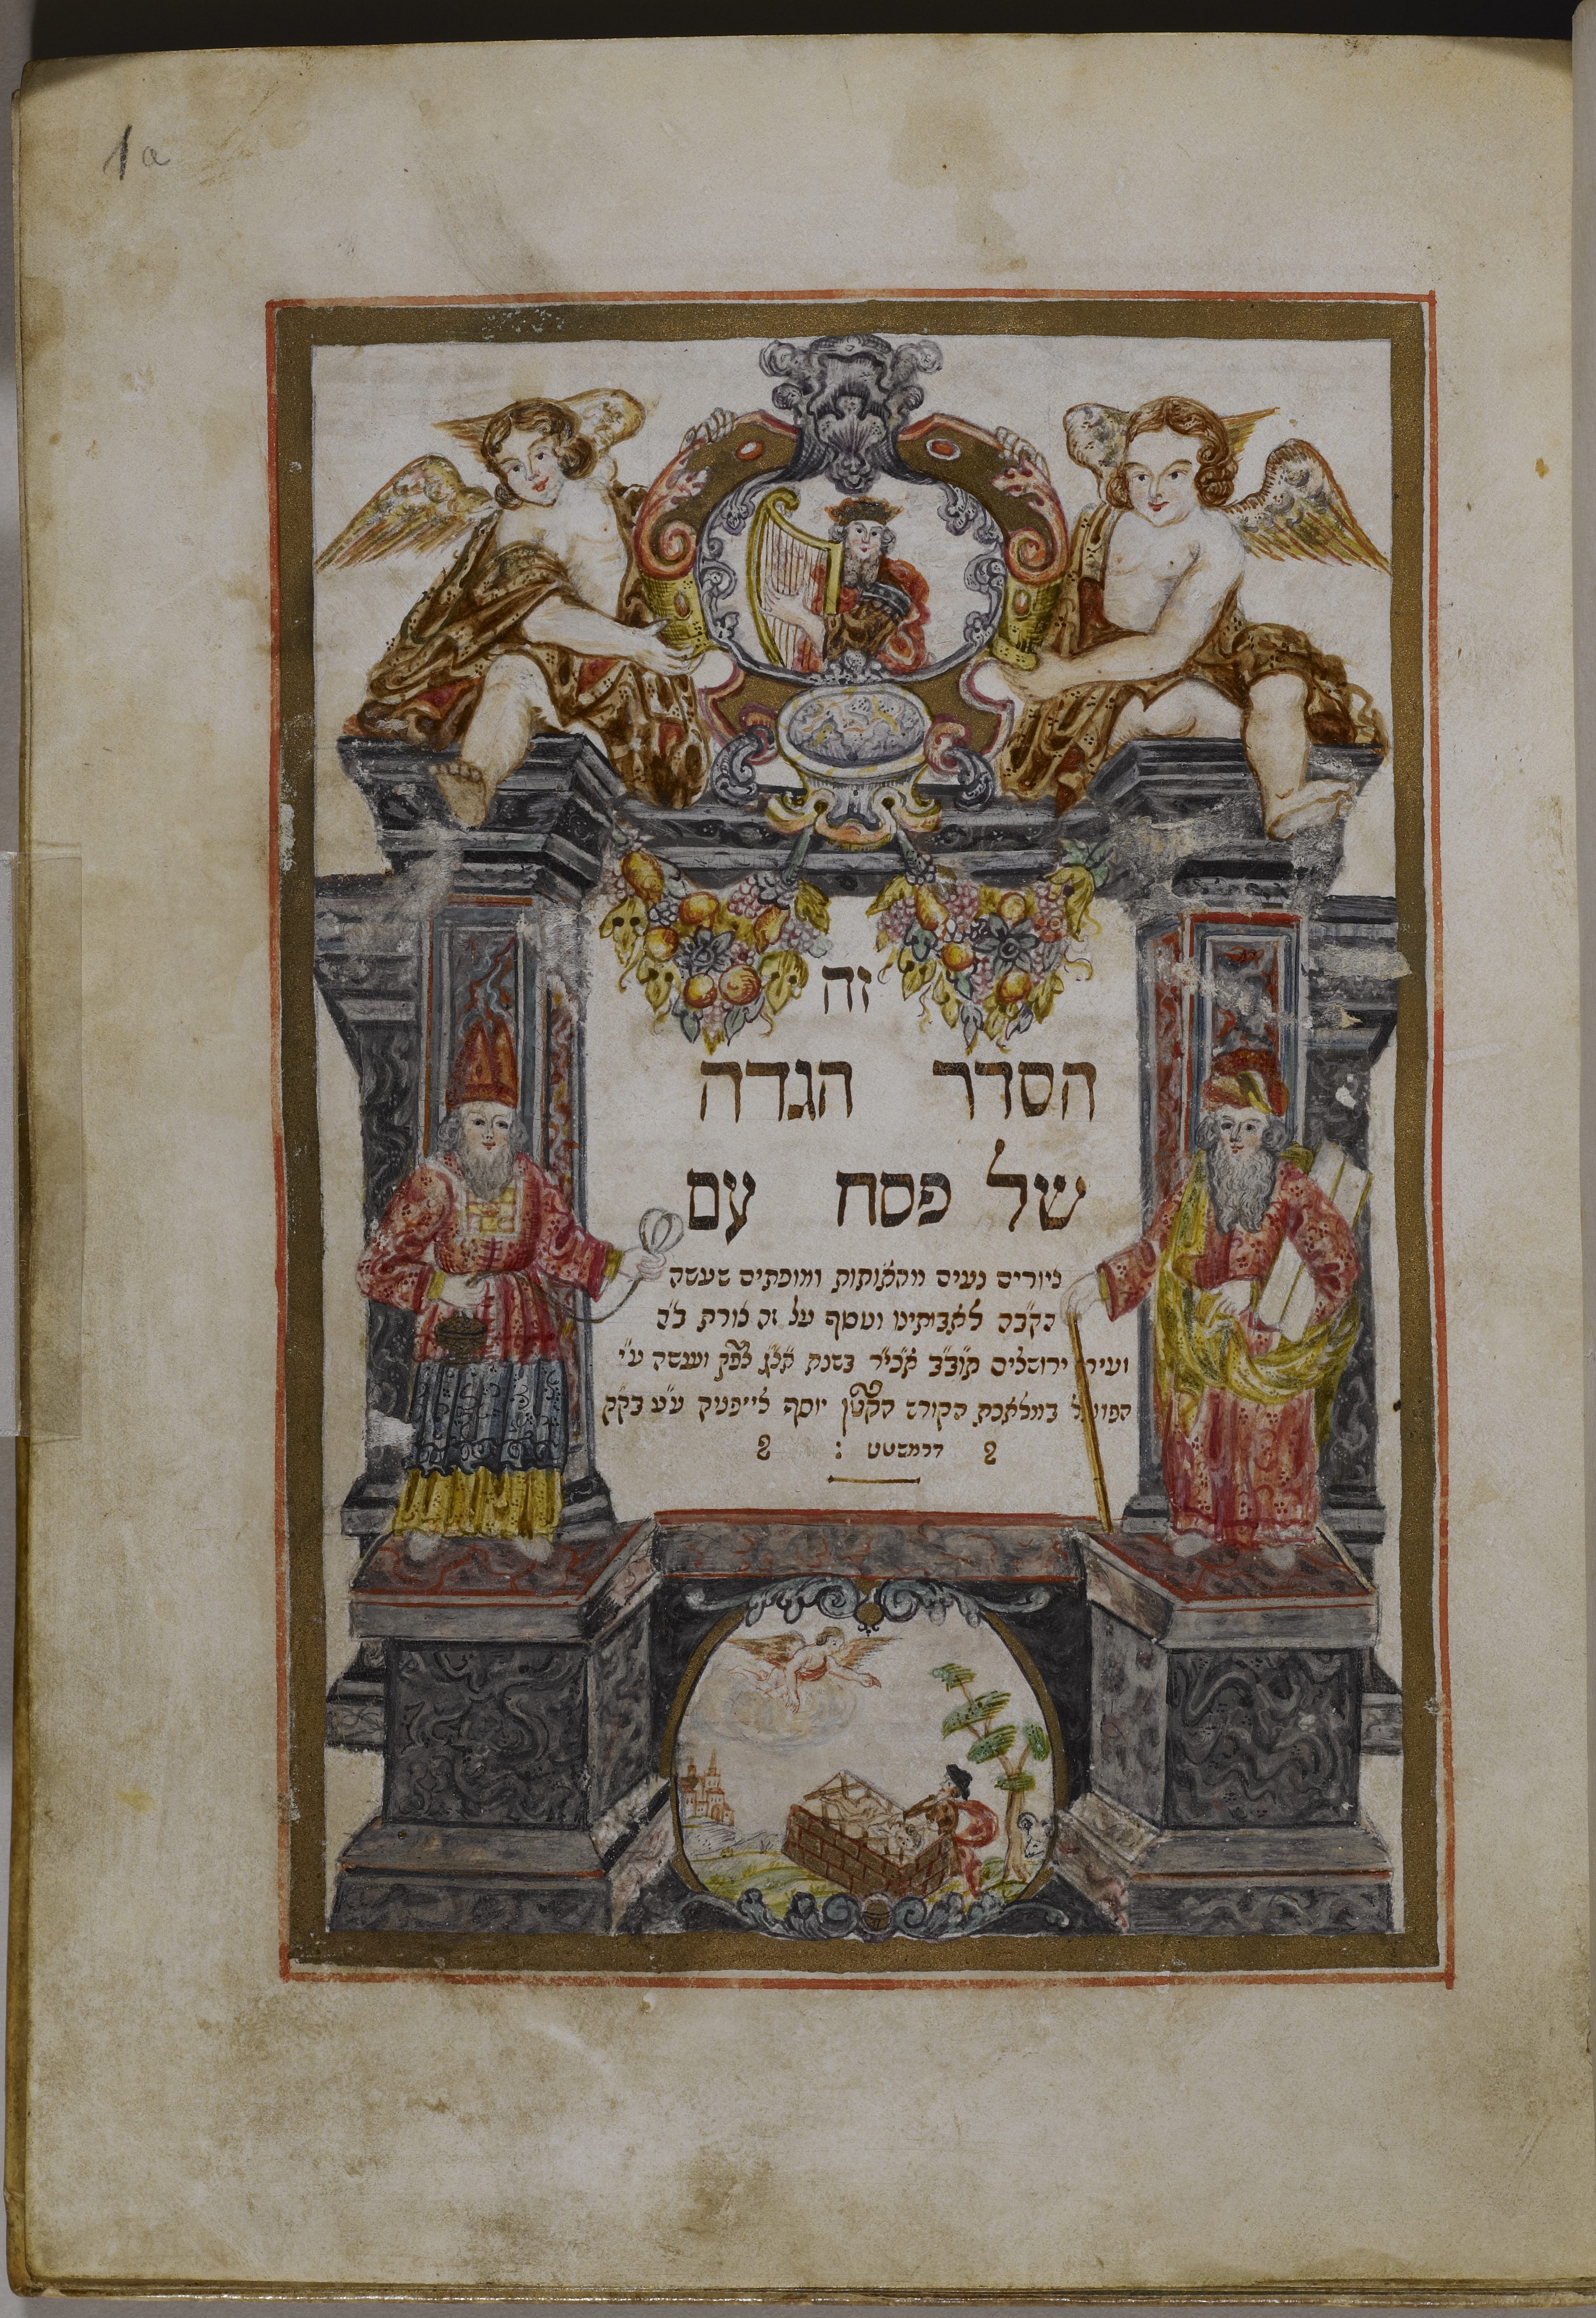 1a
זה
הסדר הגדה
של פסח עם
ציורים נעים מהאותות ומופתים שעשה
הקב״ה לאבותינו ונוסף על זה צורת ב״ה
ועיר ירושלים תוב״ב אכי״ר בשנת לפ״ק ונעשה ע״י
הפועל במלאכת הקודש הקטן יוסף לייפניק בק״ק
דרמשטט :